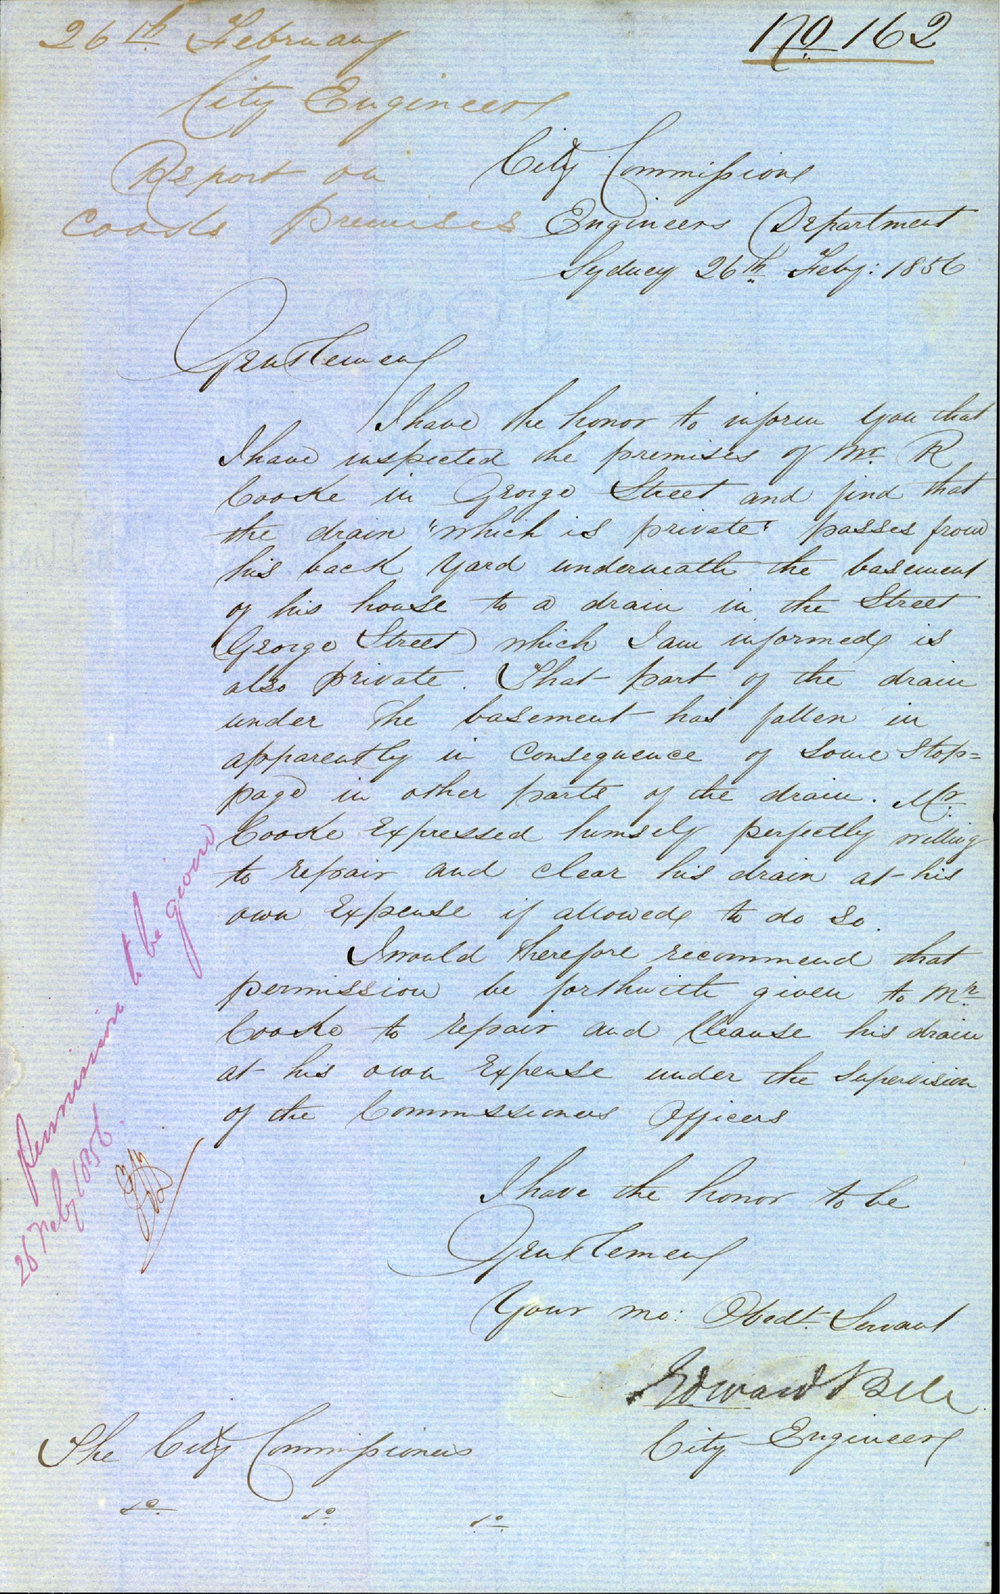 26th February
City Engineer
Report on
Cooks Premises
No 162
City Commission
Engineers Department
Sydney 26th Feby: 1856
Gentlemen
I have the honor to inform you that
I have inspected the premises of Mr. R
Cooke in George Street and find that
the drain "which is private" passes from
his back Yard underneath the basement
of his house to a drain in the Street
(George Street) which I am informed is
also private. That part of the drain
under the basement has fallen in
apparently in consequence of some Stop=
page in other parts of the drain. Mr.
Cooke Expressed himself perfectly willing
to repair and clear his drain at his
own Expense if allowed to do so.
I would therefore recommend that
permission be forthwith given to Mr.
Cooke to repair and Cleanse his drain
at his own Expense under the Supervision
of the Commissioners Officers
I have the honor to be
Gentlemen
Your mo: Obedt. Servant
Edward Bell
City Engineer
The City Commissioners
Permission to be given
26 Feby 1856.